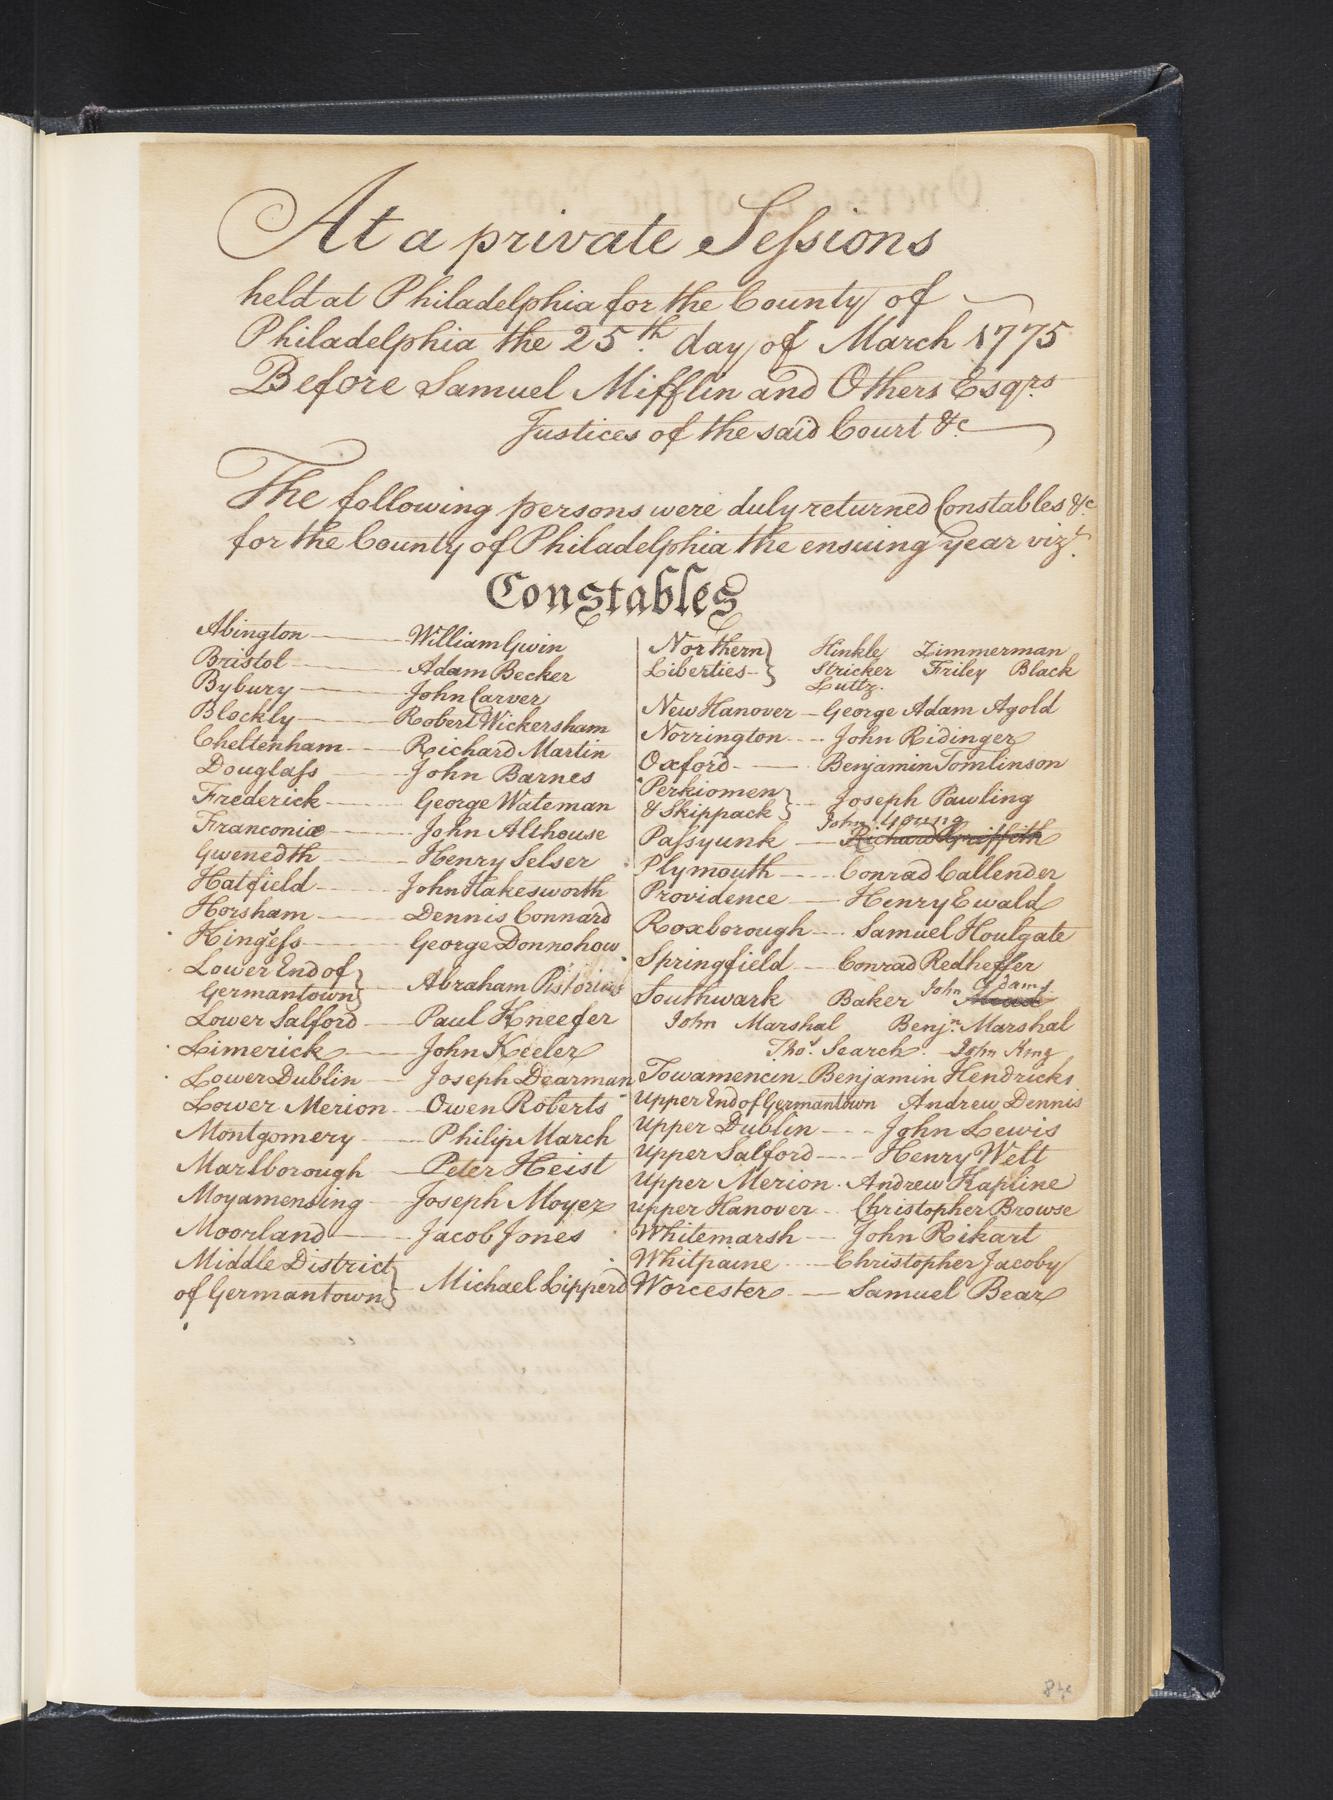 At a private Sessions
held at Philadelphia for the County of
Philadelphia the 25th day of March 1775
Before Samuel Mifflin and Others Esqrs
Justices of the said Court &c
The following persons were duly returned Constables &c
for the County of Philadelphia the ensuing year vizt.
Constables
Abington William Gwin
Bristol Adam Becker
Bybury John Carver
Blockly Robert Wickersham
Cheltenham Richard Martin
Douglass John Barnes
Frederick George Wateman
Franconia John Althouse
Gwenedth Henry Selser
Hatfield John Hakesworth
Horsham Dennis Connard
Kingsess George Donnohow
Lower End of
Germantown } Abraham Pistorius
Lower Salford Paul Kneefer
Limerick John Keeler
Lower Dublin Joseph Dearman
Lower Merion Owen Roberts
Montgomery Philip March
Marlborough Peter Heist
Moyamensing Joseph Moyer
Moorland Jacob Jones
Middle District
of Germantown } Michael Lipperd
Northern } Hinkle Zimmerman
Liberties } Stricker Friley Black
Luttz.
New Hanover George Adam Agold
Norrington John Ridinger
Oxford Benjamin Tomlinson
Perkiomen
& Skippack } Joseph Pawling
John Young
Passyunk Richard Griffith
Plymouth Conrad Callender
Providence Henry Ewald
Roxborough Samuel Houlgate
Springfield Conrad Redheffer
Southwark Baker John Adams
John Marshal Benjn. Marshal
Thos. Search. John King
Towamencin Benjamin Hendricks
Upper End of Germantown Andrew Dennis
Upper Dublin John Lewis
Upper Salford Henry Welt
Upper Merion Andrew Kapline
Upper Hanover Christopher Browse
Whitemarsh John Rikart
Whitpaine Christopher Jacoby
Worcester Samuel Bear